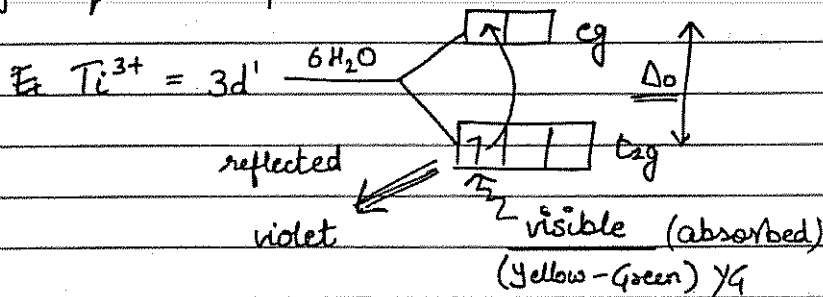 eg
Ex Ti³⁺ = 3d¹ 6H₂O
Δo
t₂g
reflected
violet visible (absorbed)
(Yellow-Green) YG